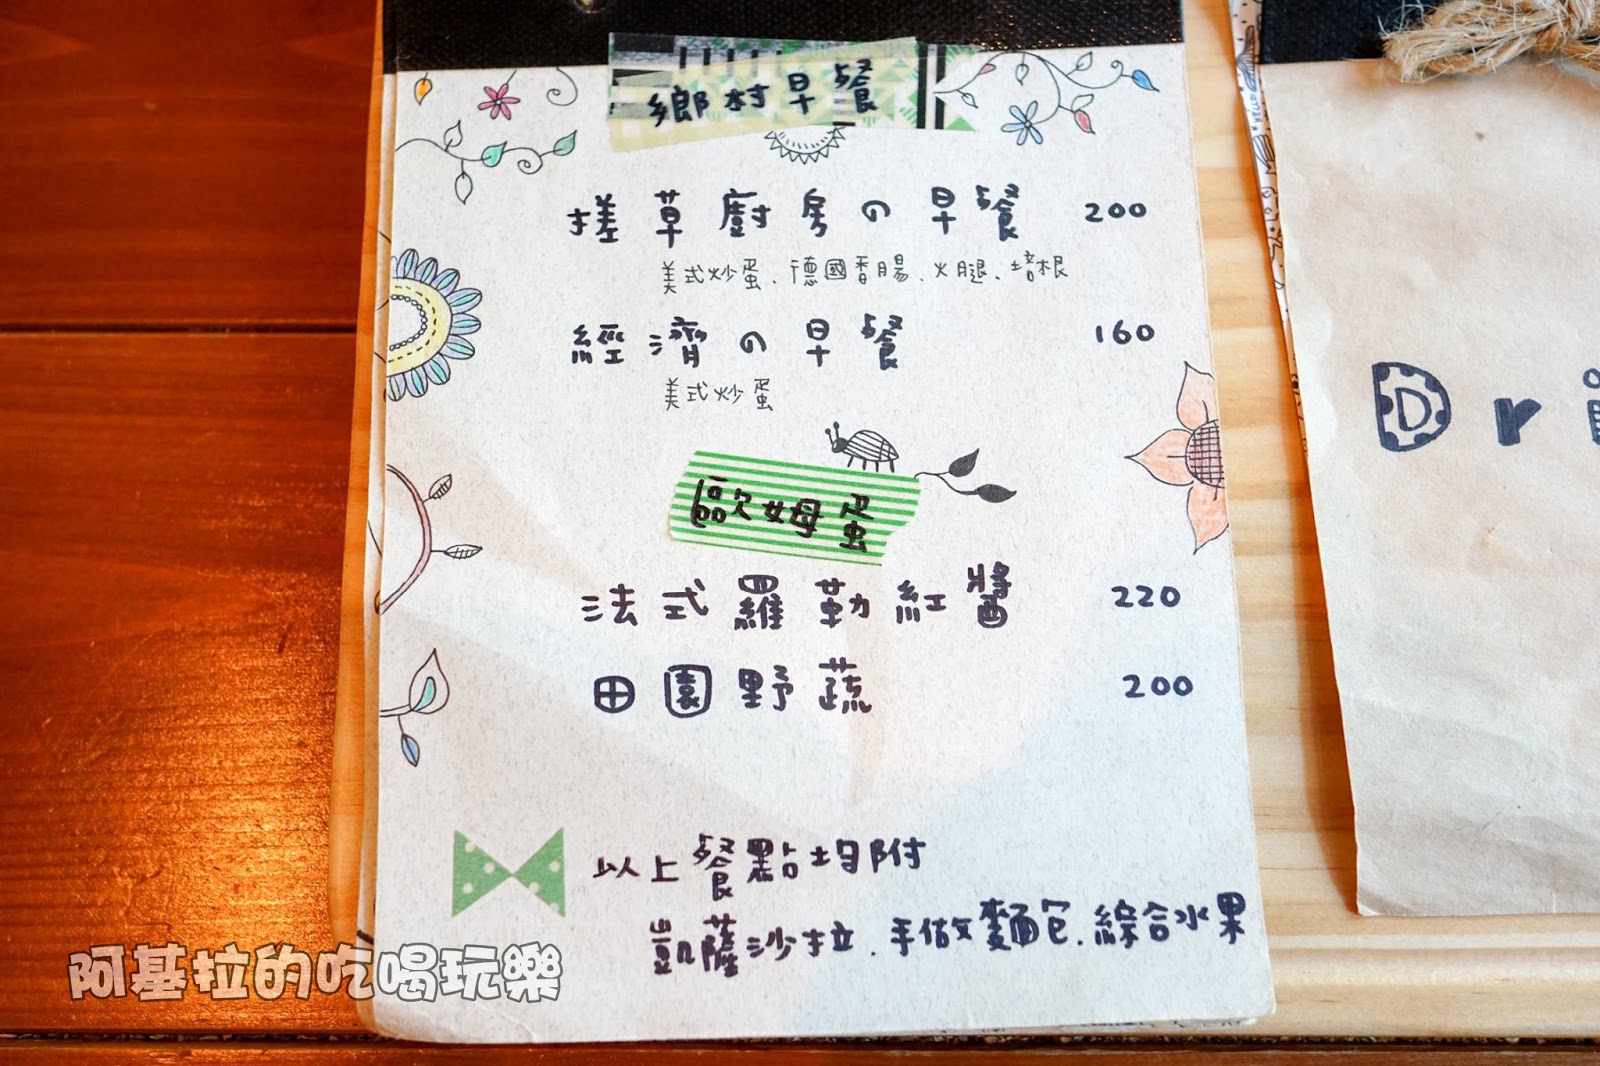 鄉村早餐
搓草廚房の早餐 200
美式炒蛋、德國香腸、火腿、培根
經濟の早餐 160
美式炒蛋
歐姆蛋
法式羅勒紅醬 220
田園野蔬 200
以上餐點均附
凱薩沙拉、手做麵包、綜合水果
Dri
阿基拉的吃喝玩樂